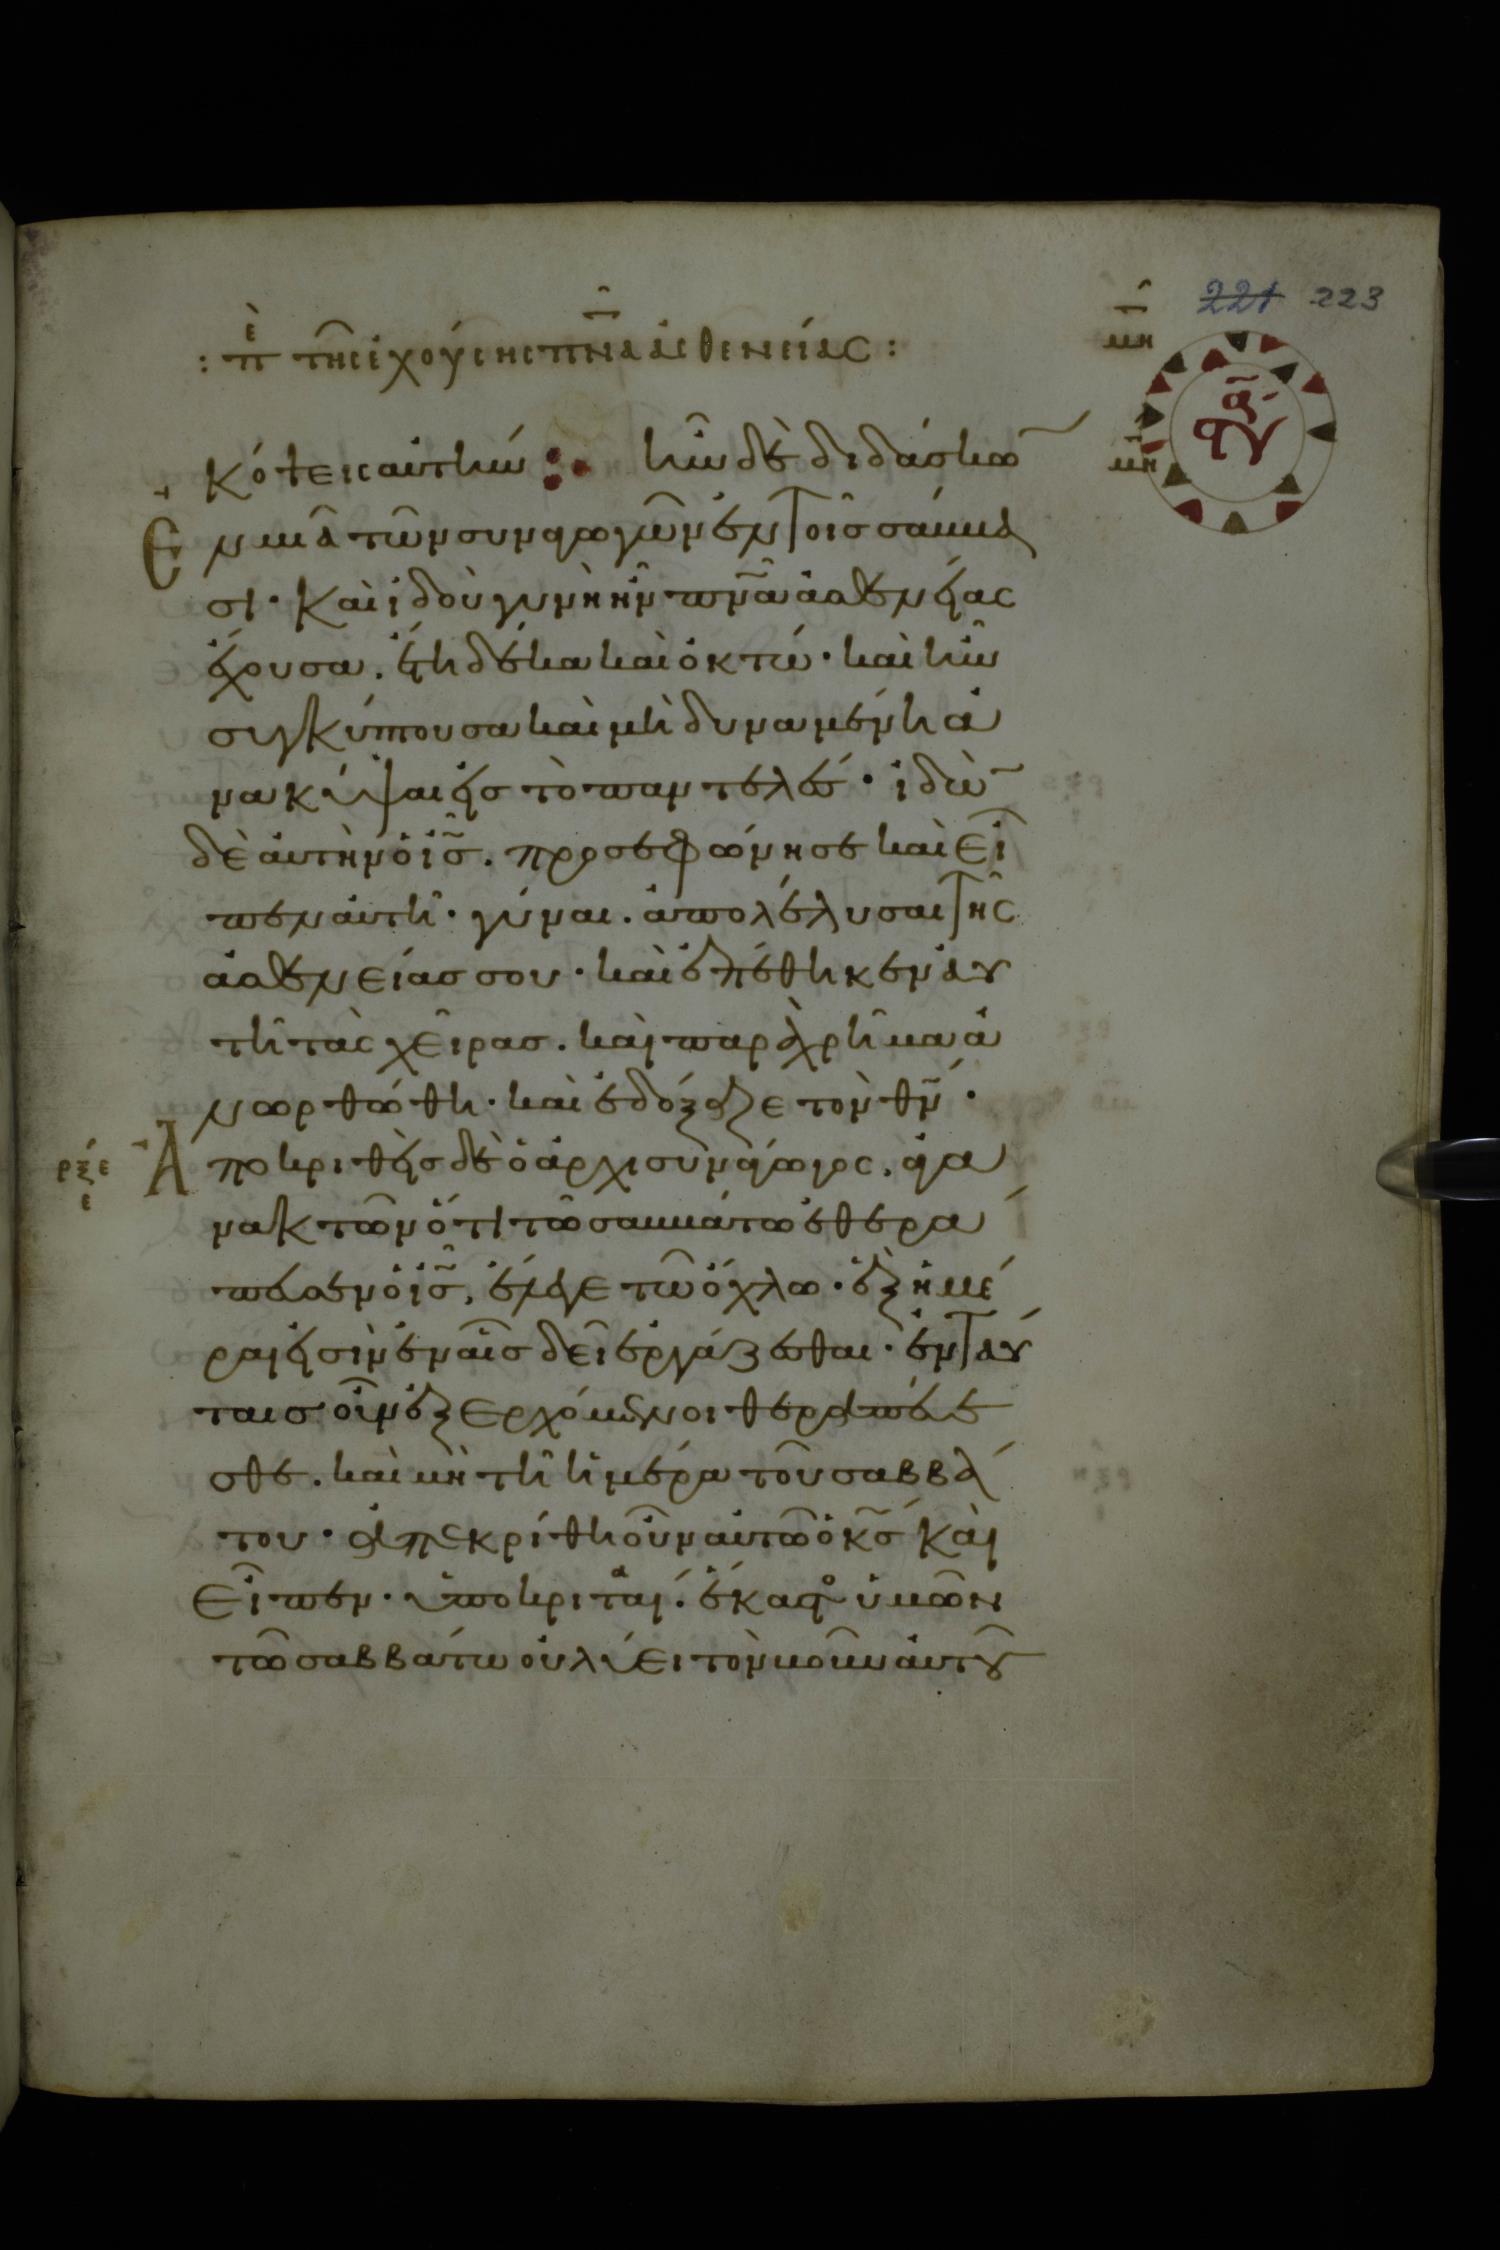 221 223
: πε τῆς ἐχούσης πνα ἀσθενείας : μη
κόψεις αὐτήν : ἦν δὲ διδάσκω
ν μιᾶ τῶν συναγωγῶν ἐν τοῖς σάββα
Ε
σι· καὶ ἰδοὺ γυνὴ ἦν πνα ἀσθενείας
ἔχουσα. ἔτη δέκα καὶ ὀκτώ· καὶ ἦν
συγκύπτουσα καὶ μὴ δυναμένη ἀ
νακύψαι εἰς τὸ παντελές· ἰδὼ
δὲ αὐτὴν ὁ ις. προσεφώνησε καὶ εἶ
πεν αὐτῆ· γύναι. ἀπολέλυσαι τῆς
ἀσθενείας σου· καὶ ἐπέθηκεν αὐ
τῆ τὰς χεῖρας. καὶ παραχρῆμα ἀ
νωρθώθη· καὶ ἐδόξαζε τὸν θν·
ρξε
ε
Α ποκριθεὶς δὲ ὁ ἀρχισυνάγωγος, ἀγα
νακτῶν ὅτι τῶ σαββάτω ἐθερά
πευσεν ὁ ις, ἔλεγε τῶ ὄχλω· ἓξ ἡμέ
ραι εἰσὶν ἐν αἷς δεῖ ἐργάζεσθαι· ἐν ταύ
ταις οὖν ἐξερχόμενοι θεραπεύε
σθε. καὶ μὴ τῆ ἡμέρα τοῦ σαββά
του· ἀπεκρίθη οὖν αὐτῶ ὁ κς καὶ
εἶπεν· ὑποκριταί. ἕκαστος ὑμῶν
τῶ σαββάτω οὐ λύει τὸν βοῦν αὐτοῦ